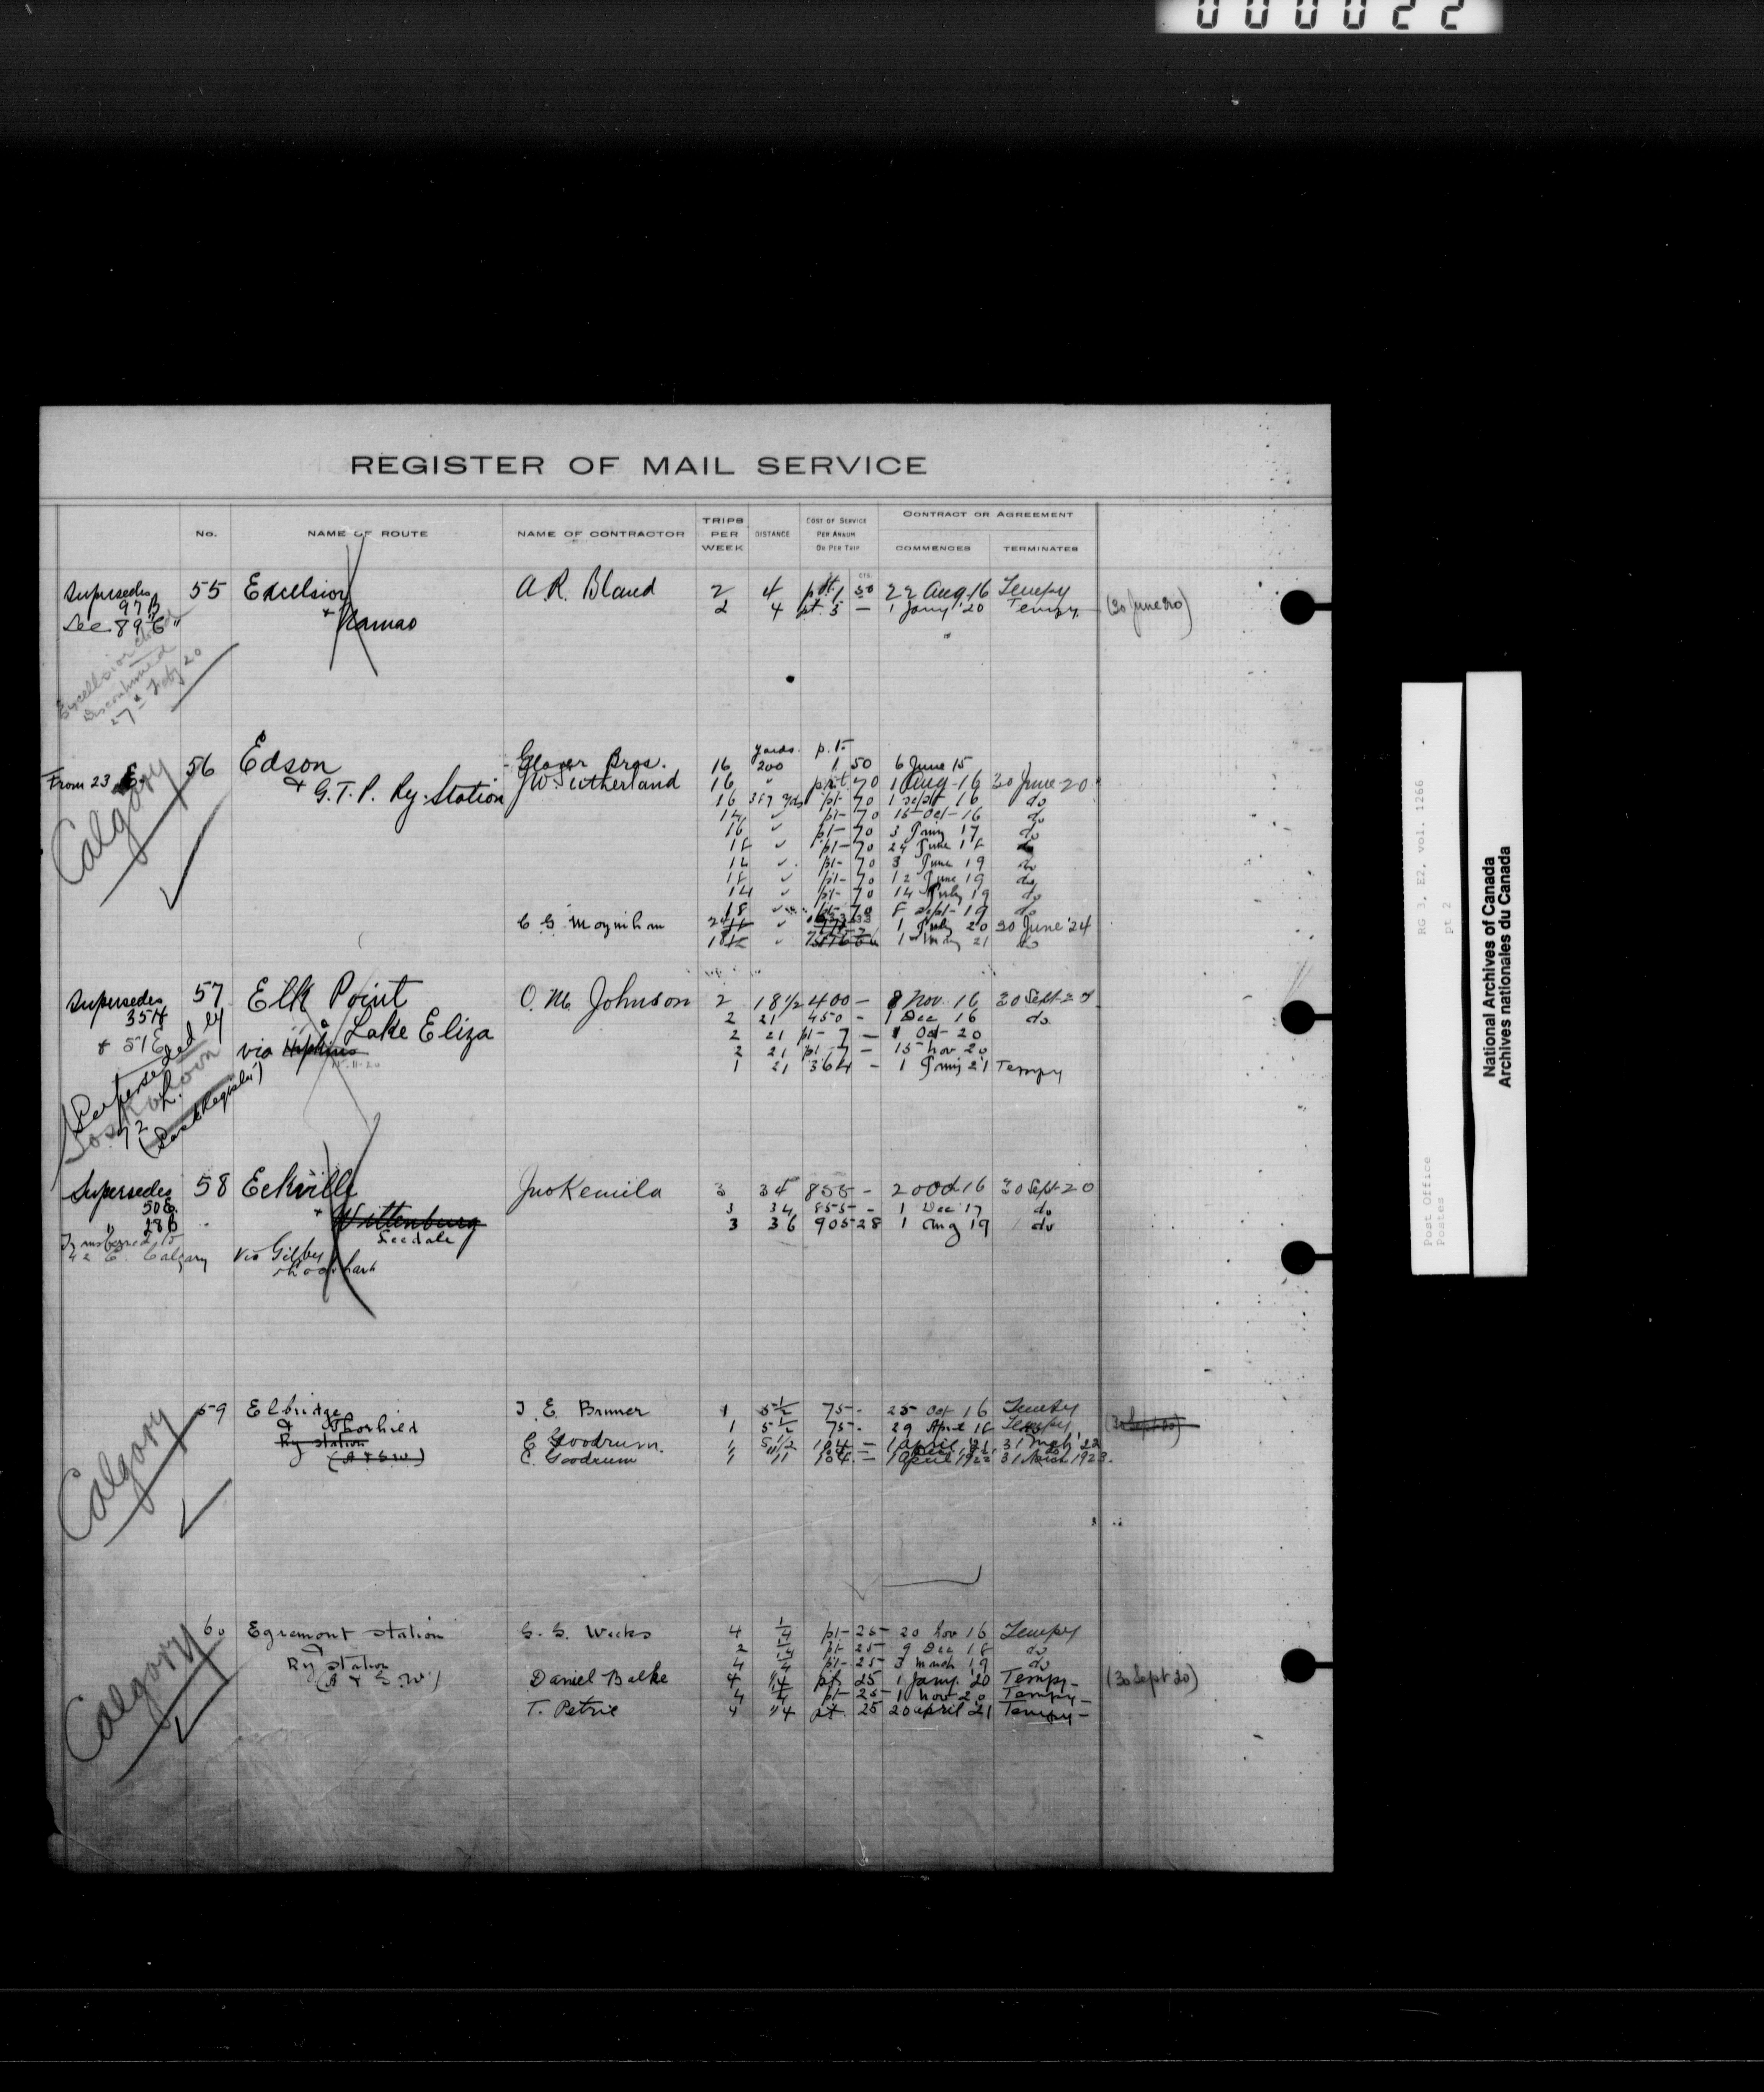 000022
REGISTER OF MAIL SERVICE
No. NAME OF ROUTE NAME OF CONTRACTOR TRIPS PER WEEK DISTANCE COST OF SERVICE PER ANNUM OR PER TRIP CONTRACT OR AGREEMENT COMMENCES TERMINATES
CTS.
Supersedes 55 Excelsior A. R. Bland 2 4 pt. 1 50 22 Aug. 16 Tempy
97 B + Namao 2 4 pt. 5 — 1 Jany '20 Tempy (30 June 20)
See 89 E "
Excelsior
Discontinued
27th Feby 20
yards p.t.
56 Edson Glover Bros. 16 200 1 50 6 June 15
From 23 E. + G.T.P. Ry. Station J W Sutherland 16 " p.t. 70 1 Aug 16 30 June 20
Calgary
16 317 yds pt- 70 1 Sept 16 do
14 pt- 70 16 Oct-16 do
16 pt- 70 3 Jany 17 do
18 pt- 70 24 June 18 do
12 pt- 70 3 June 19 do
18 pt- 70 12 June 19 do
14 pt- 70 14 July 19 do
18 pt- 70 8 Sept-19 do
C G Moynihan 1 July 20 30 June '24
1 May 21 do
Supersedes 57 Elk Point O. M. Johnson 2 18 1/2 400 — 8 Nov. 16 30 Sept 20
35 H + Lake Eliza 2 21 450 - 1 Dec 16 do
+ 51 E via Hopkins 2 21 pt- 7 — 1 Oct-20
2 21 pt- 7 — 15 Nov 20
1 21 364 - 1 Jany 21 Tempy
Superseded by
72 L.
(Sask Register)
Supersedes 58 Eckville Jno Kemila 3 34 855 - 2 Oct 16 30 Sept 20
50 E. + Wittenburg 3 34 855 - 1 Dec 17 do
" 28 B Leedale 3 36 905 28 1 Aug 19 do
Transferred to
42 E. Calgary via Gilby
59 Elbridge J. E. Bruner 1 5 1/2 75 - 25 Oct 16 Tempy
& Thorhild 1 5 1/2 75 - 29 April 18 Tempy (30 Sept 20)
Ry Station E Goodrum. 1 5 1/2 104 — 1 April '21 31 Mch '22
(A & G W) E. Goodrum 1 " 104. — 1 April 1922 31 March 1923.
Calgary
60 Egremont Station G. G. Weeks 4 1/4 pt- 25 20 Nov 16 Tempy
& 2 1/4 pt- 25 9 Dec 18 do
Ry Station 4 1/4 pt- 25 3 March 19 do
(A & G W) Daniel Balke 4 1/4 pt 25 1 Jany. '20 Tempy - (30 Sept 20)
4 1/4 pt- 25 1 Nov 20 Tempy -
T. Petrie 4 1/4 pt. 25 20 April '21 Tempy -
Calgary
RG 3, E2, vol. 1266
pt 2
Post Office
Postes
National Archives of Canada
Archives nationales du Canada